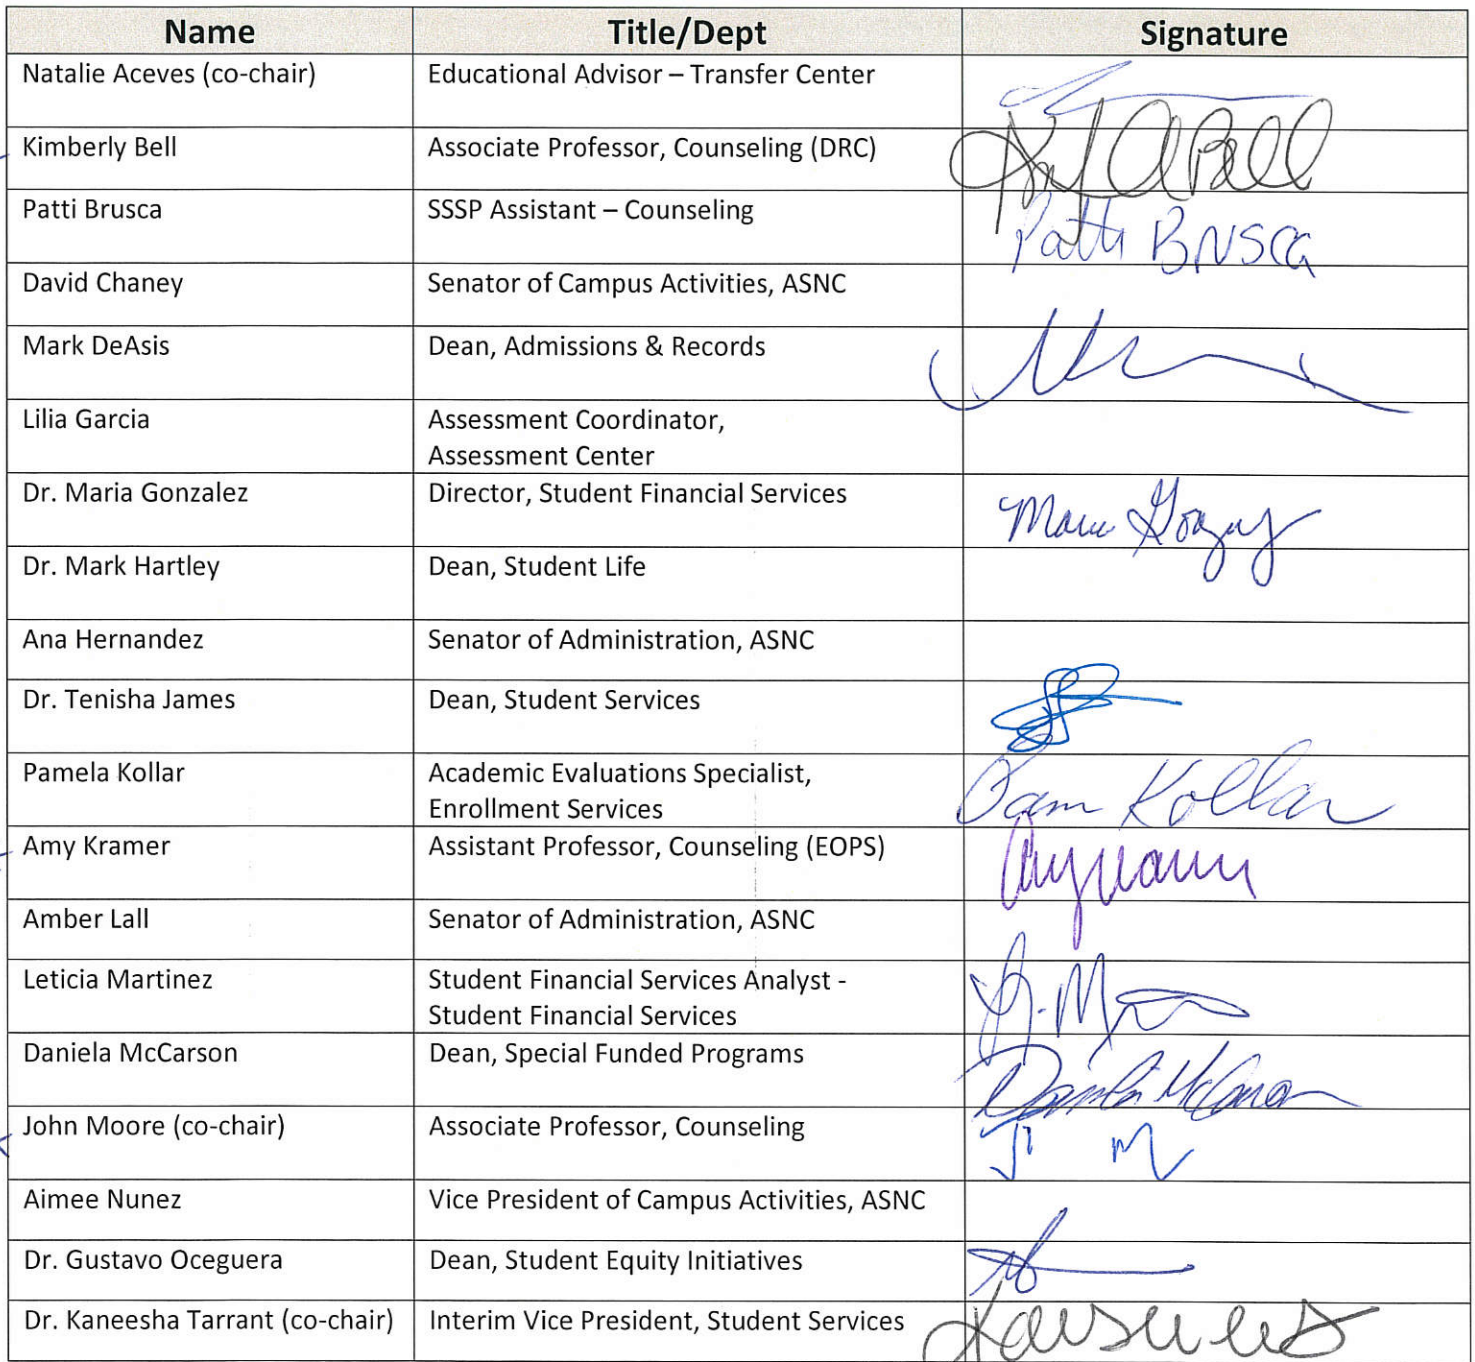 Name Title/Dept Signature
Natalie Aceves (co-chair) Educational Advisor – Transfer Center
Kimberly Bell Associate Professor, Counseling (DRC)
Patti Brusca SSSP Assistant – Counseling Patti Brusca
David Chaney Senator of Campus Activities, ASNC
Mark DeAsis Dean, Admissions & Records
Lilia Garcia Assessment Coordinator,
Assessment Center
Dr. Maria Gonzalez Director, Student Financial Services
Dr. Mark Hartley Dean, Student Life
Ana Hernandez Senator of Administration, ASNC
Dr. Tenisha James Dean, Student Services
Pamela Kollar Academic Evaluations Specialist, Pam Kollar
Enrollment Services
Amy Kramer Assistant Professor, Counseling (EOPS)
Amber Lall Senator of Administration, ASNC
Leticia Martinez Student Financial Services Analyst -
Student Financial Services
Daniela McCarson Dean, Special Funded Programs
John Moore (co-chair) Associate Professor, Counseling
Aimee Nunez Vice President of Campus Activities, ASNC
Dr. Gustavo Oceguera Dean, Student Equity Initiatives
Dr. Kaneesha Tarrant (co-chair) Interim Vice President, Student Services